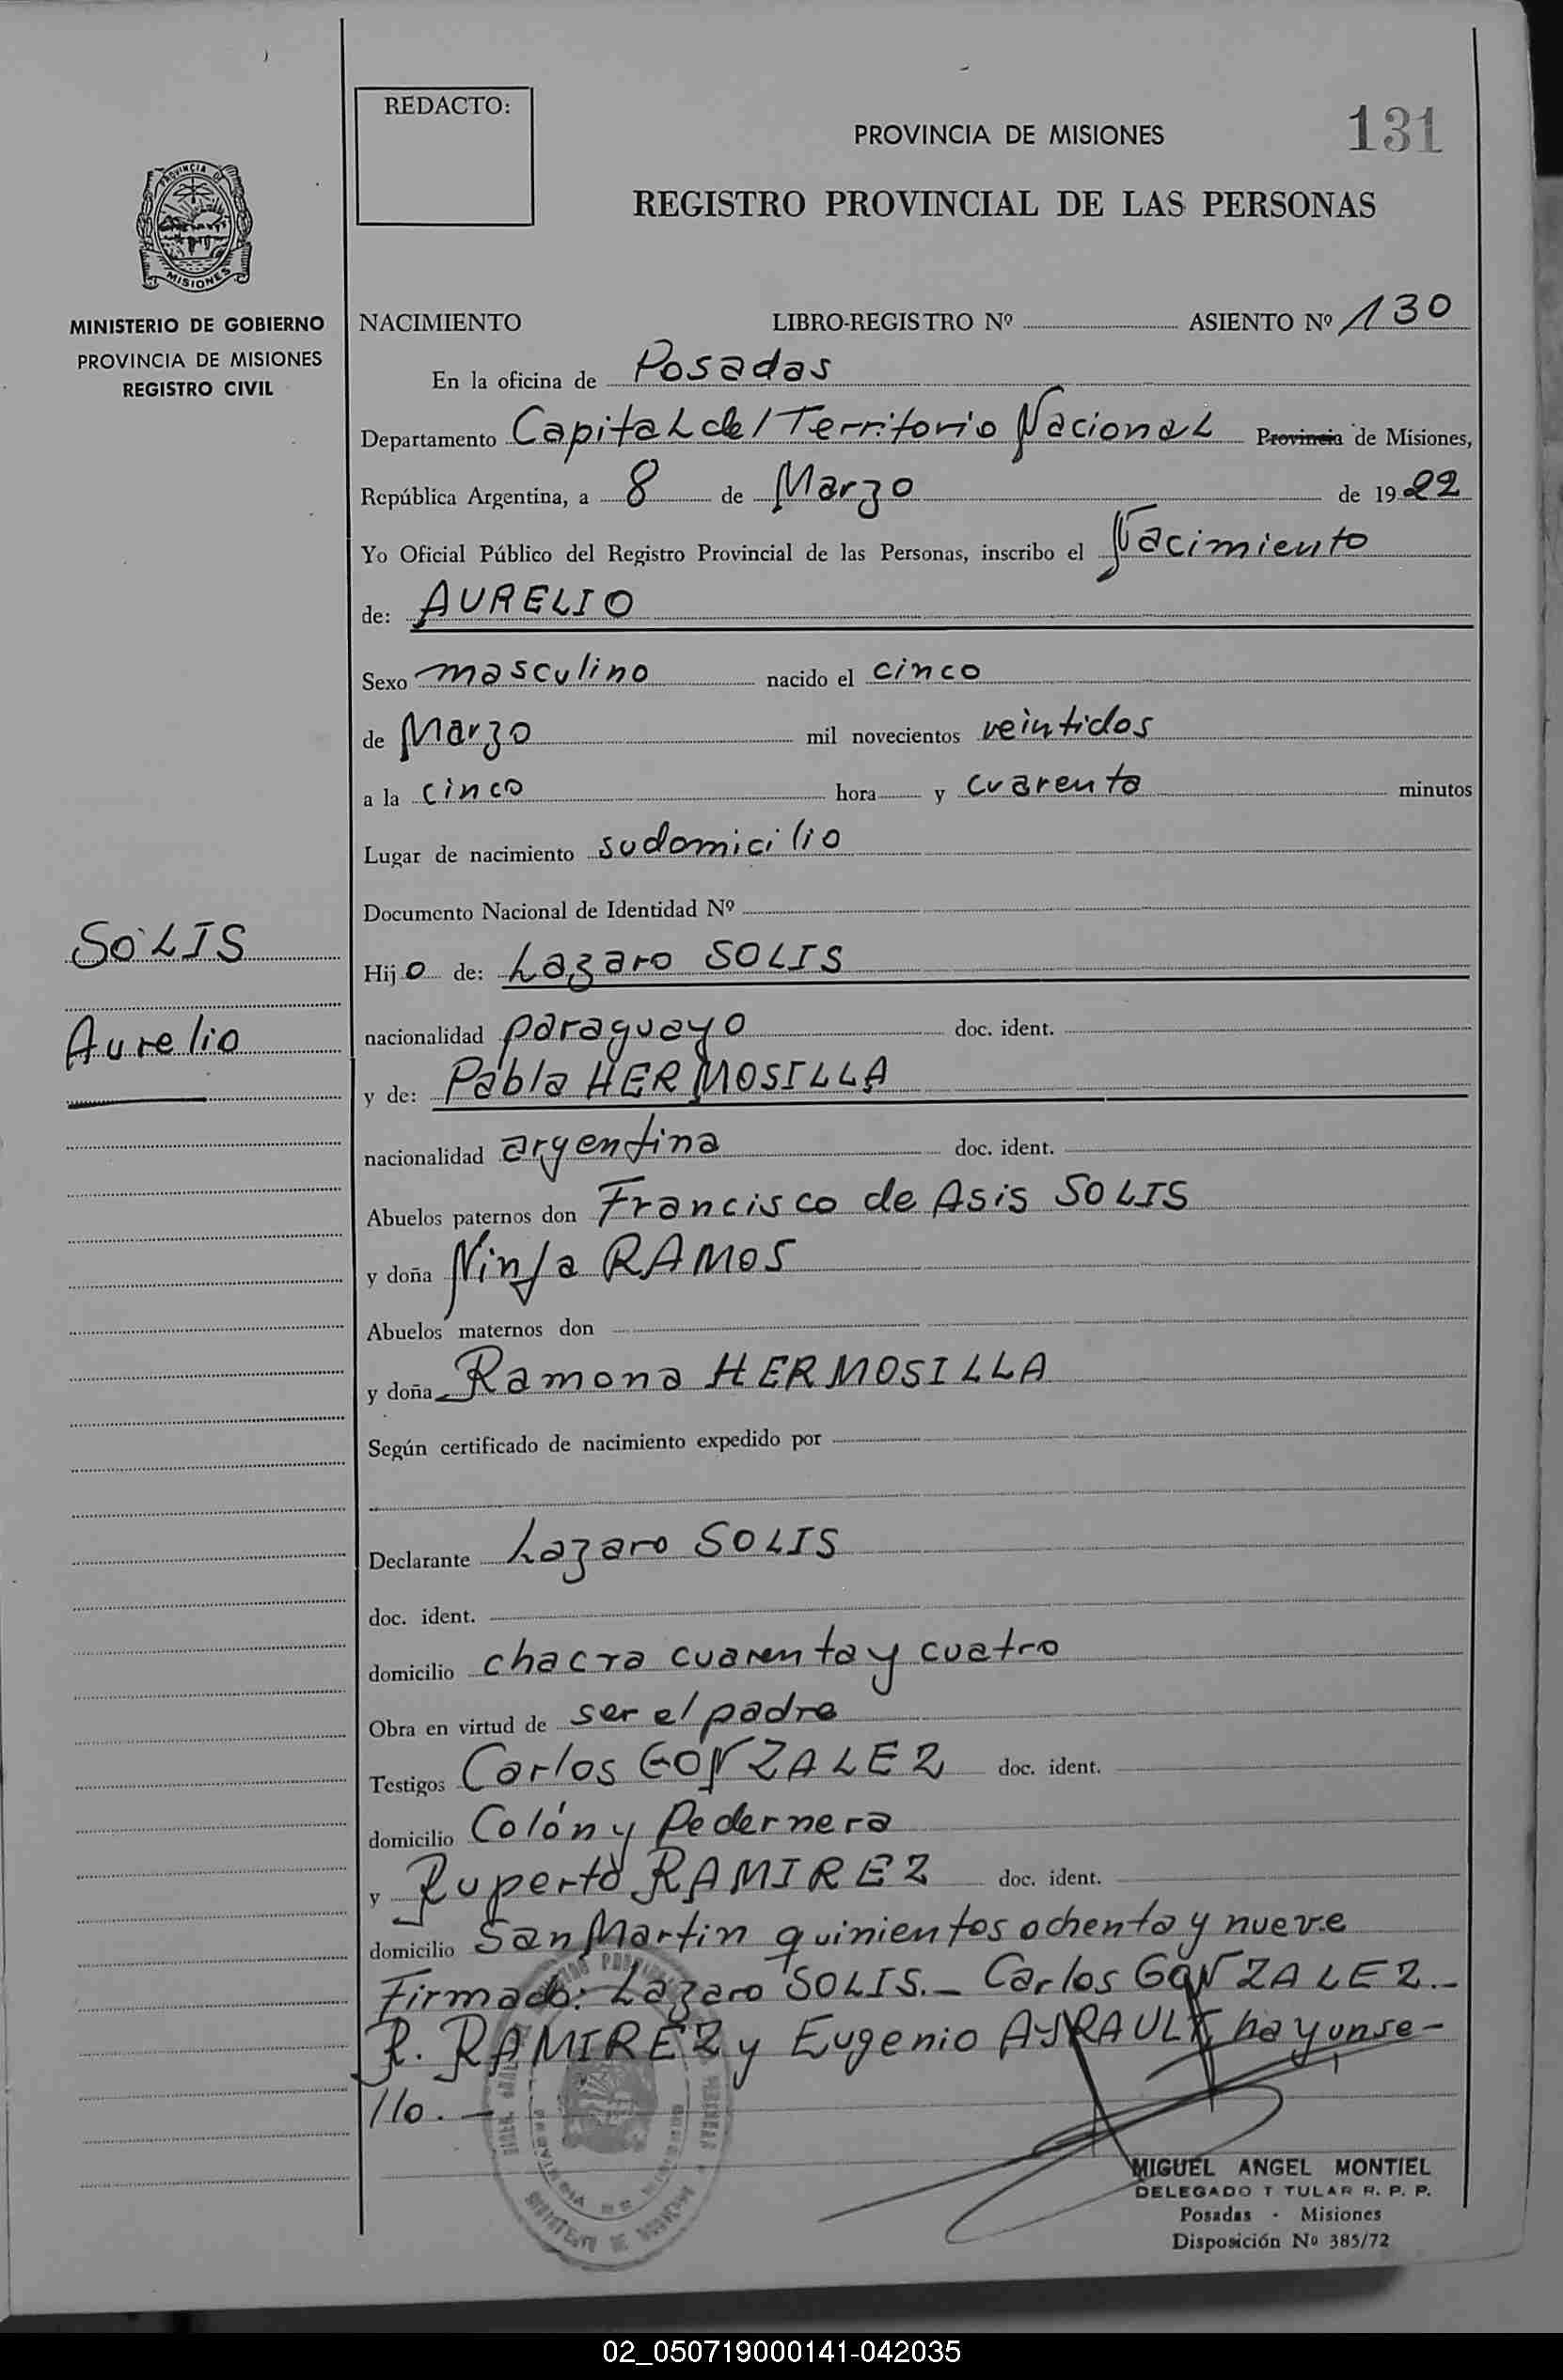 REDACTO:
PROVINCIA DE MISIONES
131
REGISTRO PROVINCIAL DE LAS PERSONAS
PROVINCIA DE
MISIONES
MINISTERIO DE GOBIERNO
PROVINCIA DE MISIONES
REGISTRO CIVIL
NACIMIENTO LIBRO-REGISTRO Nº ASIENTO Nº 130
En la oficina de Posadas
Departamento Capital del Territorio Nacional Provincia de Misiones,
República Argentina, a 8 de Marzo de 1922
Yo Oficial Público del Registro Provincial de las Personas, inscribo el Nacimiento
de: AURELIO
Sexo masculino nacido el cinco
de Marzo mil novecientos veintidos
a la cinco hora y cuarenta minutos
Lugar de nacimiento su domicilio
Documento Nacional de Identidad Nº
SOLIS
Hijo de: Lazaro SOLIS
Aurelio
nacionalidad paraguayo doc. ident.
y de: Pabla HERMOSILLA
nacionalidad argentina doc. ident.
Abuelos paternos don Francisco de Asis SOLIS
y doña Ninfa RAMOS
Abuelos maternos don
y doña Ramona HERMOSILLA
Según certificado de nacimiento expedido por
Declarante Lazaro SOLIS
doc. ident.
domicilio chacra cuarenta y cuatro
Obra en virtud de ser el padre
Testigos Carlos GONZALEZ doc. ident.
domicilio Colón y Pedernera
y Ruperto RAMIREZ doc. ident.
domicilio San Martin quinientos ochenta y nueve
Firmado: Lazaro SOLIS.- Carlos GONZALEZ.-
R. RAMIREZ y Eugenio AYRAULT, hay un se-
llo.-
MIGUEL ANGEL MONTIEL
DELEGADO TITULAR R. P. P.
Posadas - Misiones
Disposición Nº 385/72
02_050719000141-042035